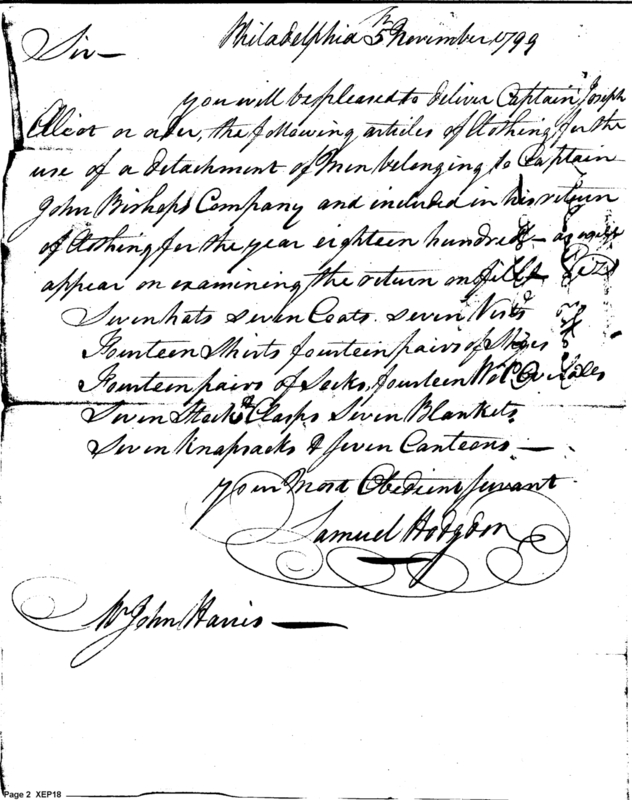 Philadelphia 5th November 1799
Sir —
you will be pleased to deliver Captain Joseph
Elliot or order, the following articles of Clothing for the
use of a detachment of Men belonging to Captain
John Bishop's Company and included in his return
of Clothing for the year eighteen hundred — as will
appear on examining the return on file Viz
Seven hats Seven Coats. Seven Vests
Fourteen Shirts fourteen pairs of Shoes
Fourteen pairs of Socks, fourteen Wo. Overalls
Seven Stocks & Clasps Seven Blankets
Seven Knapsacks & Seven Canteens —
your Most Obedient Servant
Samuel Hodgdon
Mr John Harris —
Page 2 XEP18